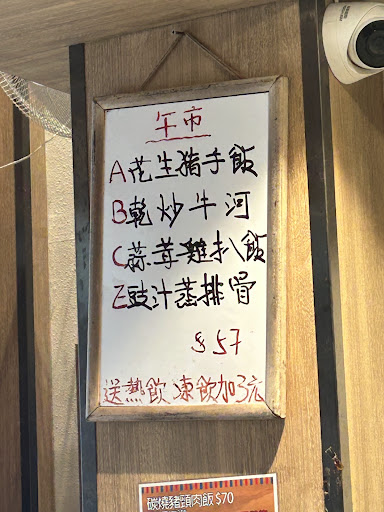 午市
A花生豬手飯
B乾炒牛河
C蒜茸雞扒飯
E豉汁蒸排骨
$57
送熱飲 凍飲加3元
碳燒豬頸肉飯 $70